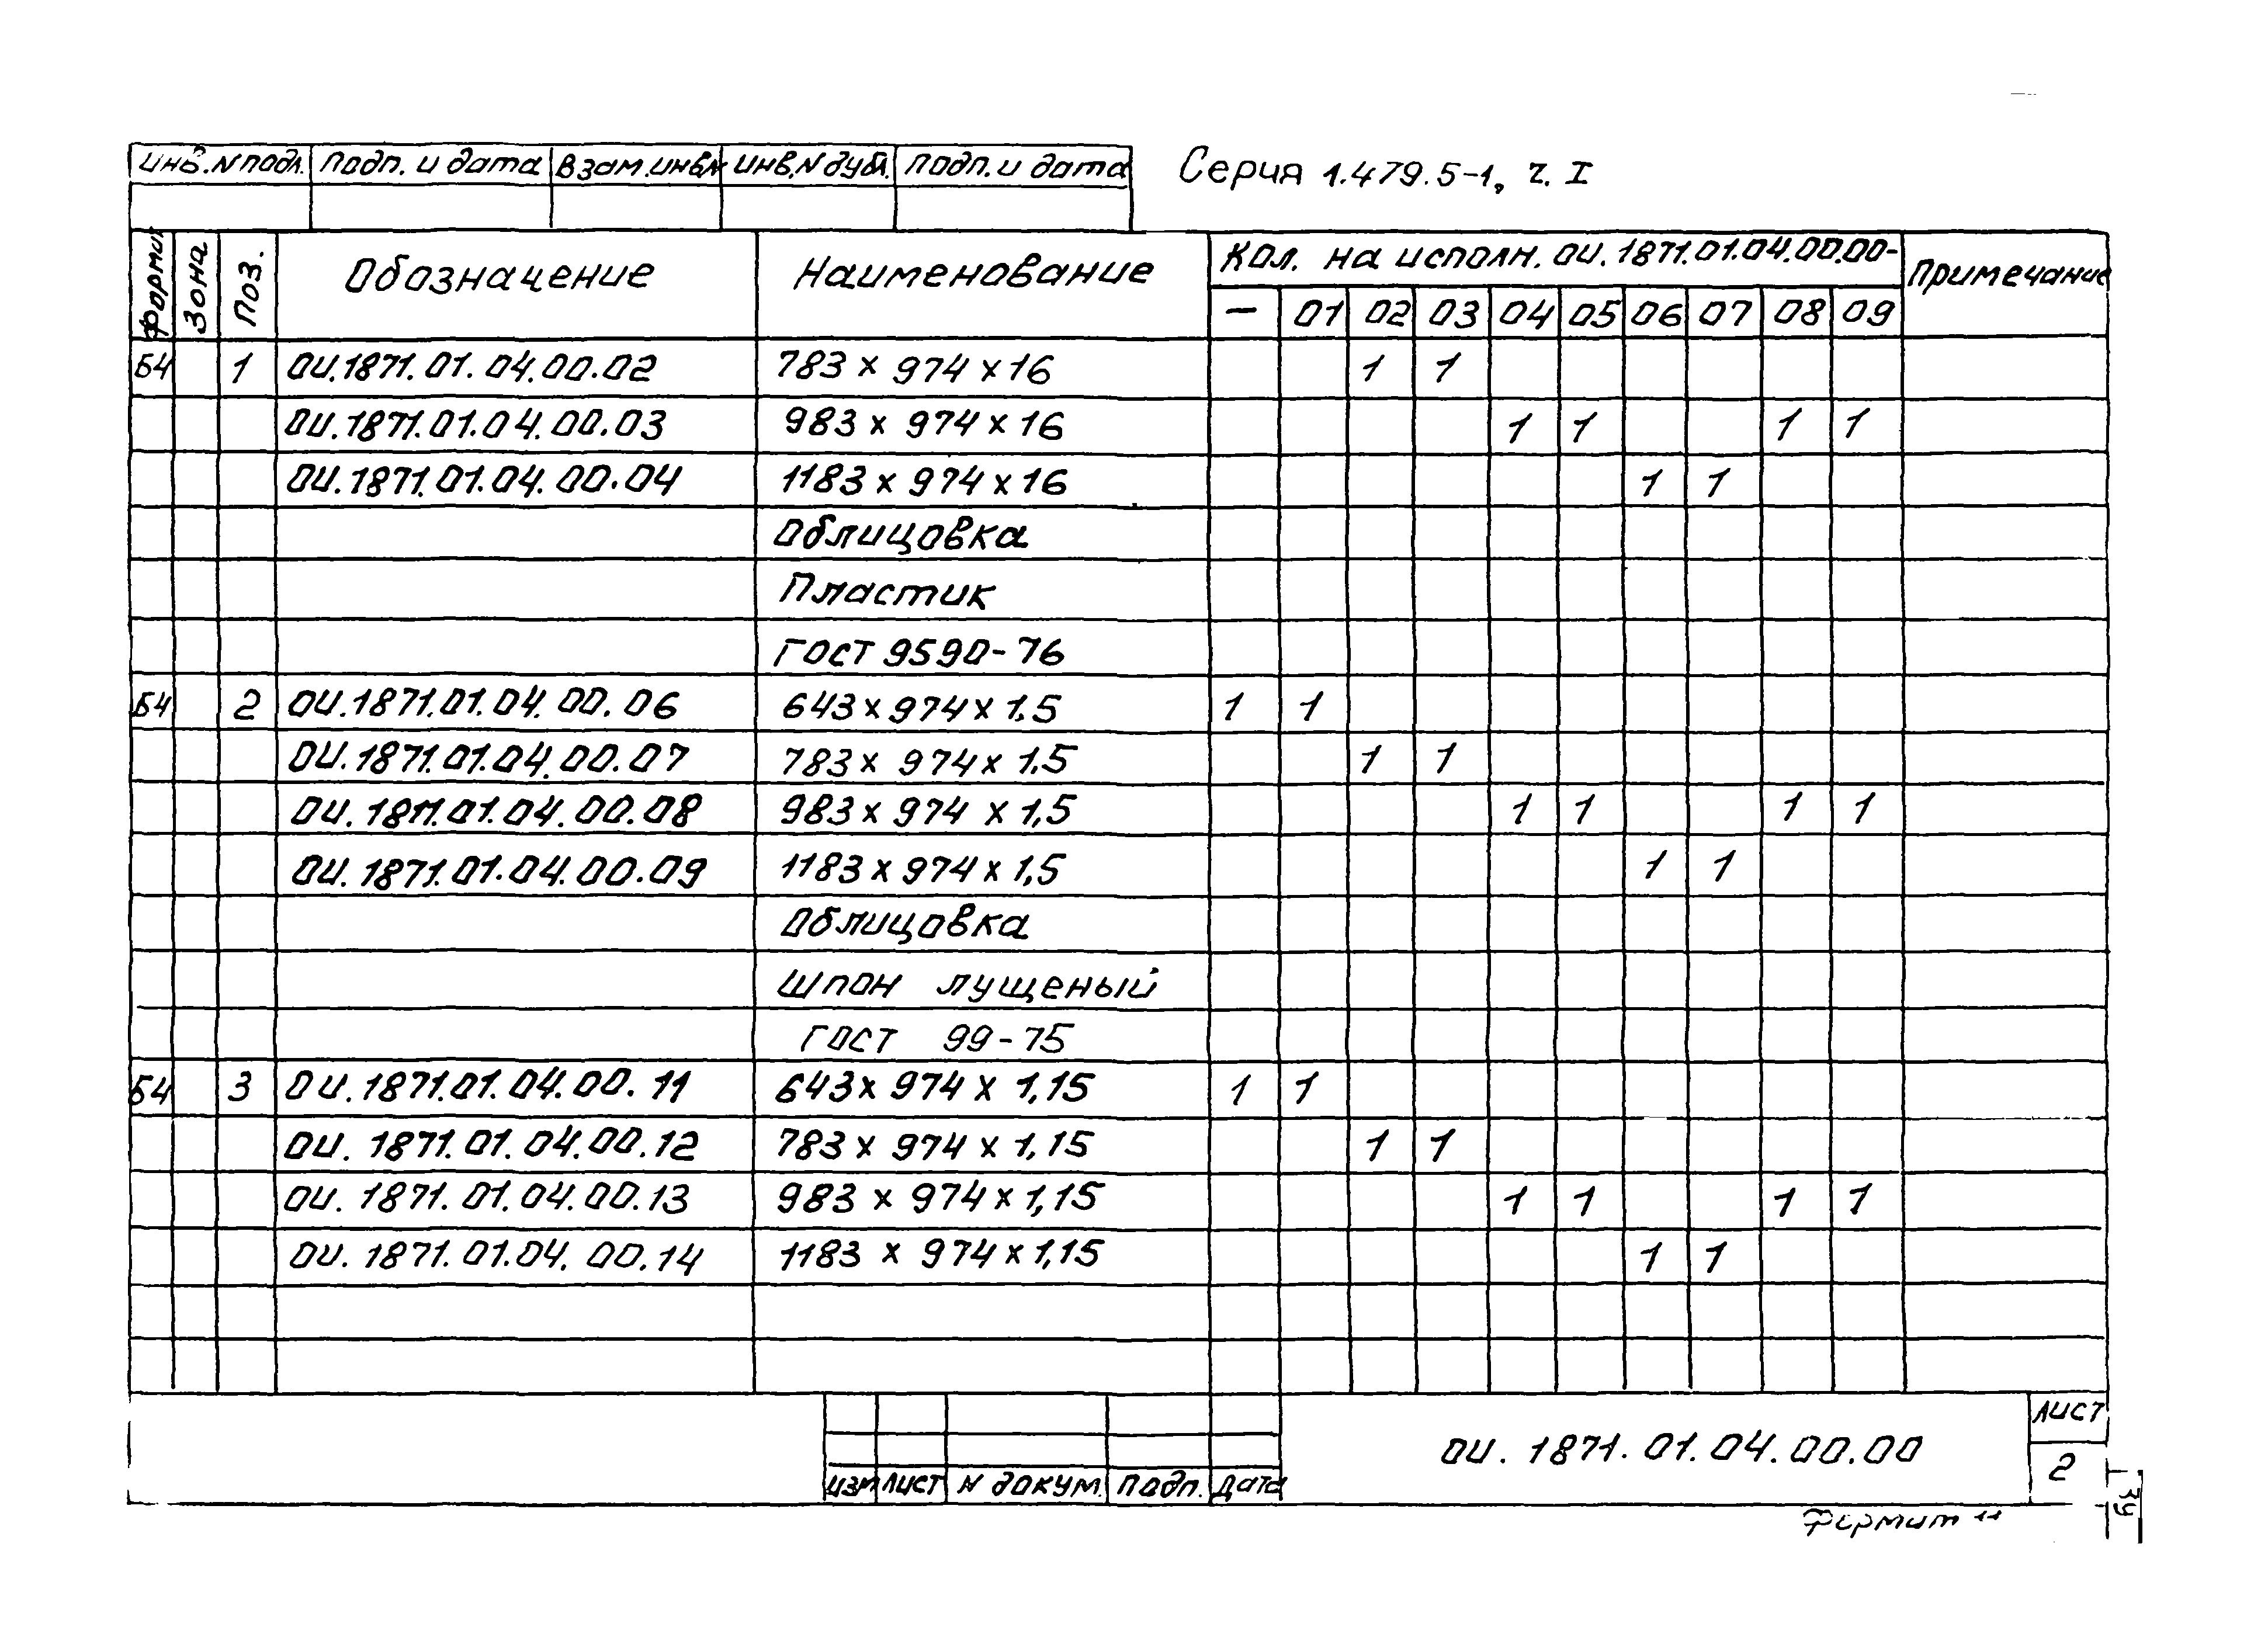 Инв.N подл. Подп. и дата Взам.инв.N Инв.N дубл. Подп. и дата Серия 1.479.5-1, ч. I
Формат Зона Поз. Обозначение Наименование Кол. на исполн. ОИ.1871.01.04.00.00- Примечание
— 01 02 03 04 05 06 07 08 09
Б4 1 ОИ.1871.01.04.00.02 783 х 974 х 16 1 1
ОИ.1871.01.04.00.03 983 х 974 х 16 1 1 1 1
ОИ.1871.01.04.00.04 1183 х 974 х 16 1 1
Облицовка
Пластик
ГОСТ 9590-76
Б4 2 ОИ.1871.01.04.00.06 643 х 974 х 1,5 1 1
ОИ.1871.01.04.00.07 783 х 974 х 1,5 1 1
ОИ.1871.01.04.00.08 983 х 974 х 1,5 1 1 1 1
ОИ.1871.01.04.00.09 1183 х 974 х 1,5 1 1
Облицовка
Шпон лущеный
ГОСТ 99-75
Б4 3 ОИ.1871.01.04.00.11 643 х 974 х 1,15 1 1
ОИ.1871.01.04.00.12 783 х 974 х 1,15 1 1
ОИ.1871.01.04.00.13 983 х 974 х 1,15 1 1 1 1
ОИ.1871.01.04.00.14 1183 х 974 х 1,15 1 1
Изм Лист N докум. Подп. Дата ОИ.1871.01.04.00.00 Лист
2
Формат 11